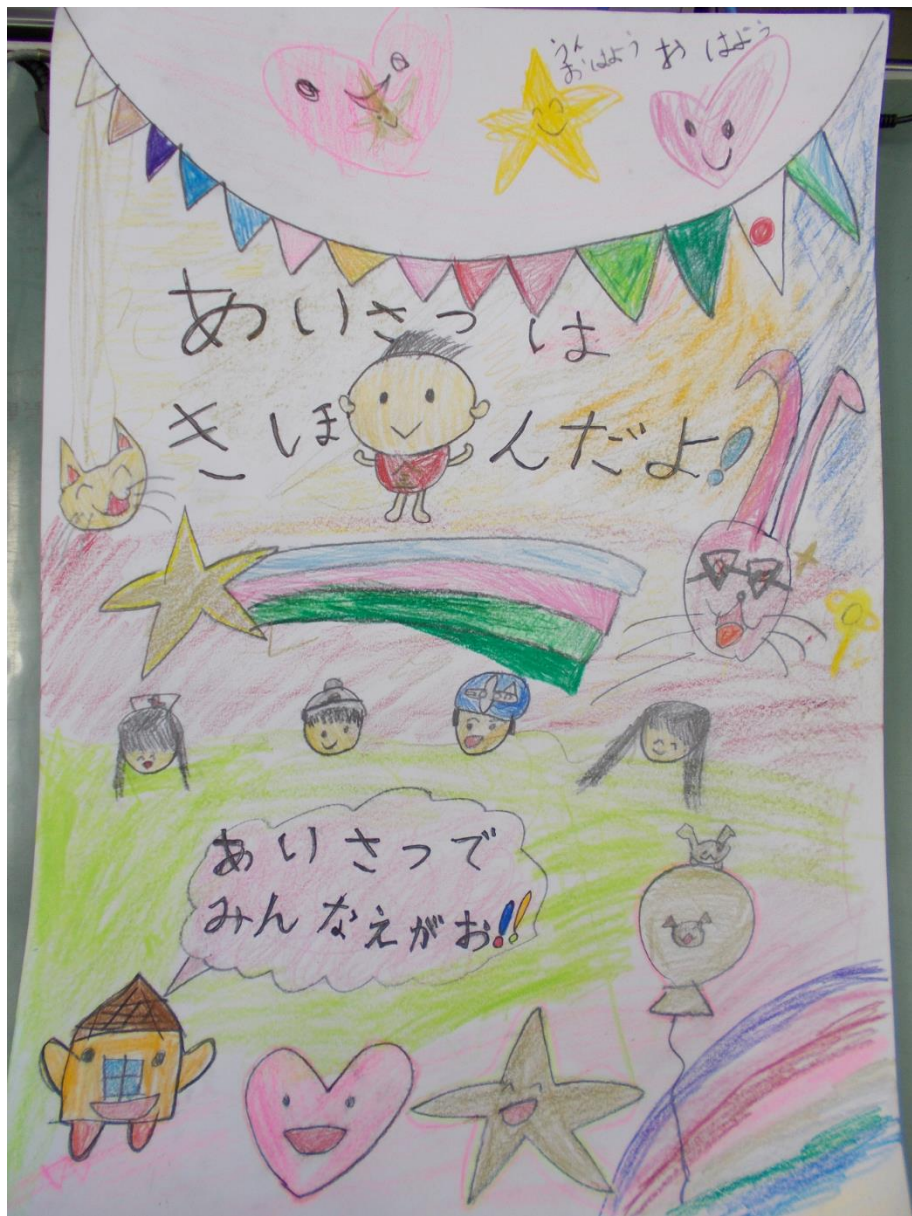 うん
おはよう
おはよう
あいさつは
きほんだよ!
金
あいさつで
みんなえがお!!